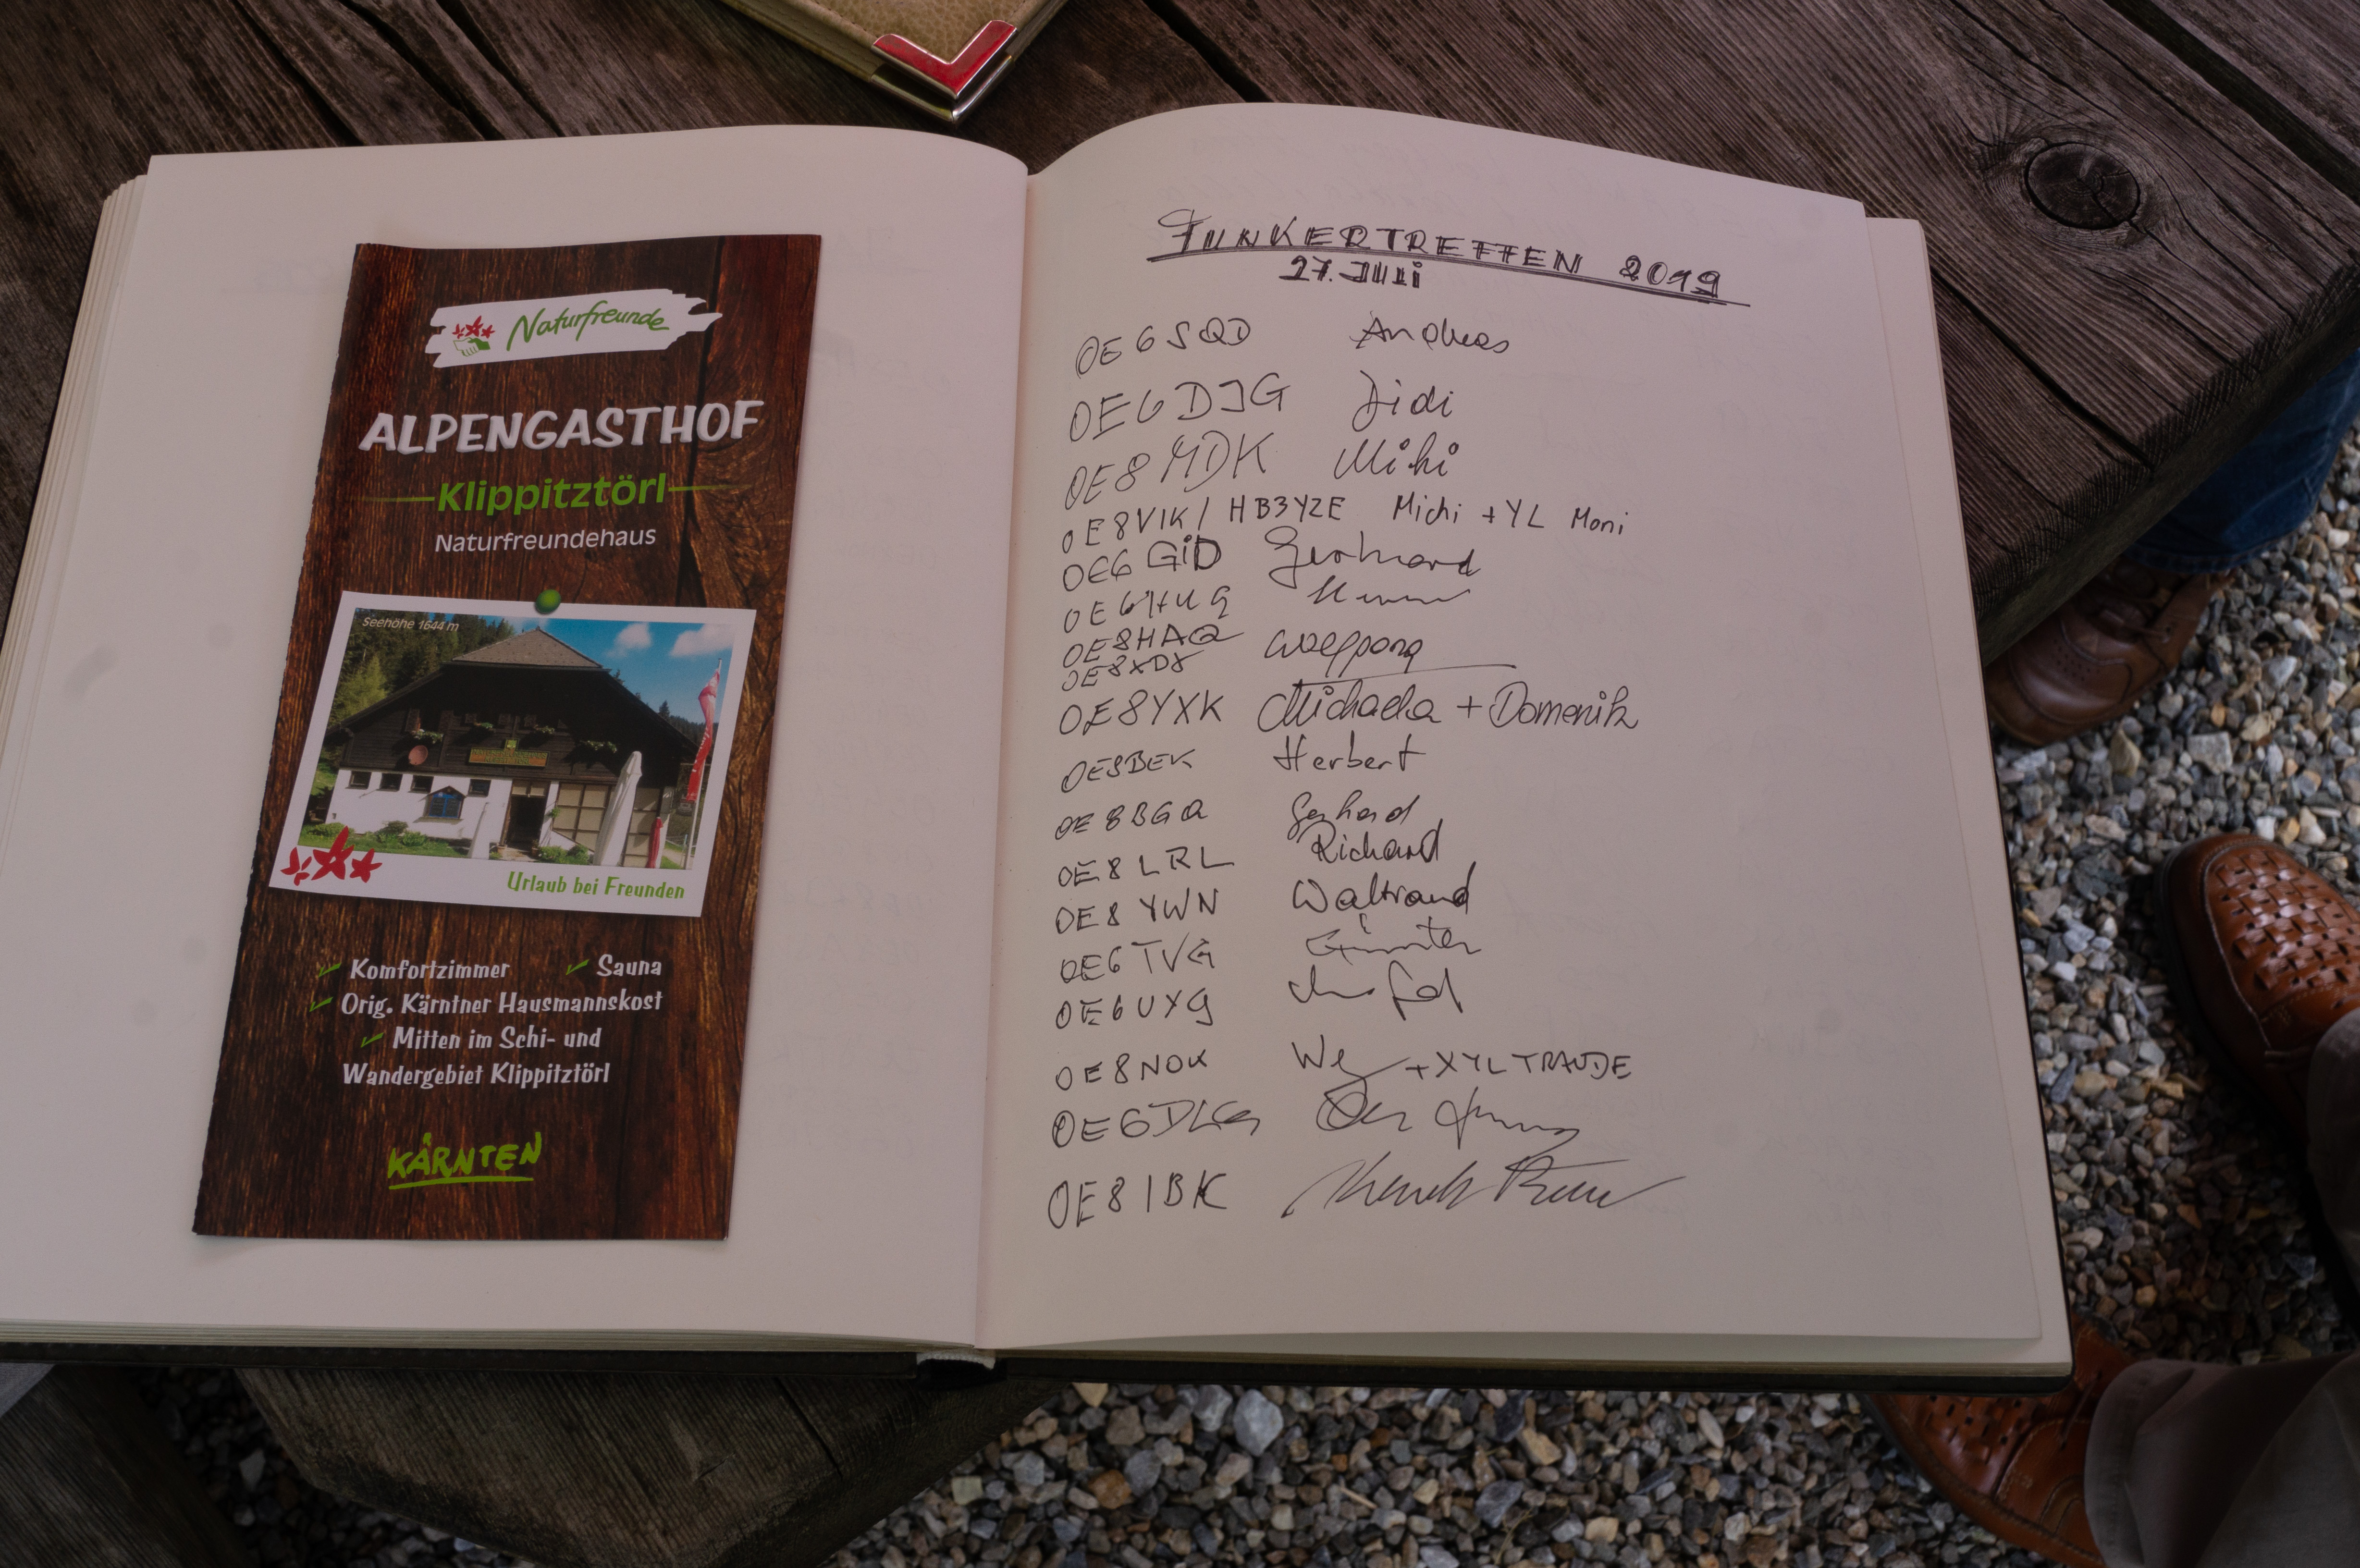 Naturfreunde
ALPENGASTHOF
Klippitztörl
Naturfreundehaus
Seehöhe 1644 m
Urlaub bei Freunden
Komfortzimmer Sauna
Orig. Kärntner Hausmannskost
Mitten im Schi- und
Wandergebiet Klippitztörl
KÄRNTEN
FUNKERTREFFEN 2019
27. JULI
OE6SQD Andreas
OE6DJG Didi
OE8MDK Miki
OE8VIK / HB3YZE Michi + YL Moni
OE6GiD Gerhard
OE6HUG
OE8HAQ Wolfgang
OE8XDX
OE8YXK Michaela + Domenik
OE8BEK Herbert
OE8BGQ Gerhard
OE8LRL Richard
OE8YWN Waltraud
OE6TVG Günter
OE6UXG
OE8NOK + XYL TRAUDE
OE6DLG
OE8IBK